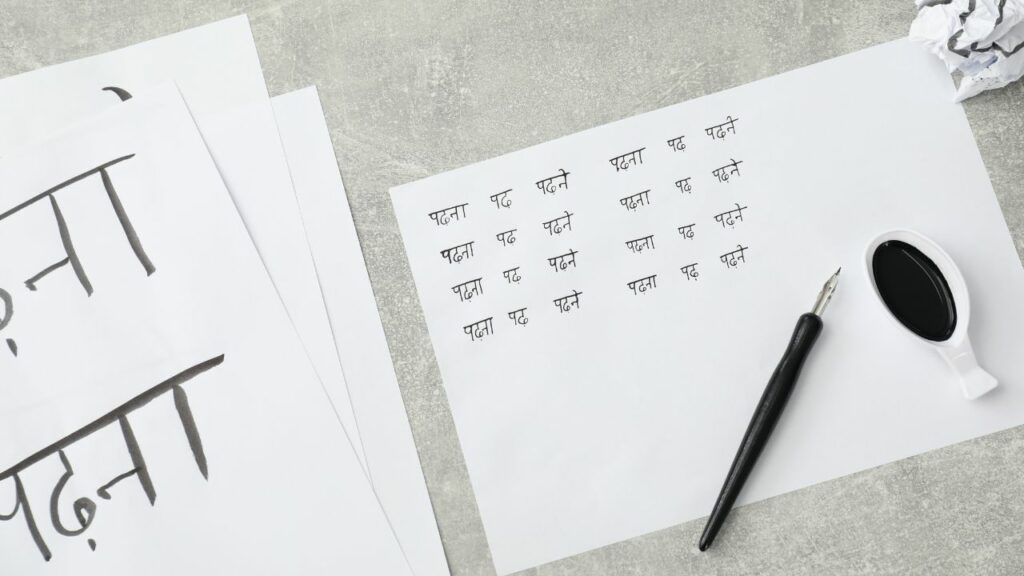 पढ़ना
पढ़ना
पढ़ना पढ़ पढ़ने पढ़ना पढ़ पढ़ने
पढ़ना पढ़ पढ़ने पढ़ना पढ़ पढ़ने
पढ़ना पढ़ पढ़ने पढ़ना पढ़ पढ़ने
पढ़ना पढ़ पढ़ने पढ़ना पढ़ पढ़ने